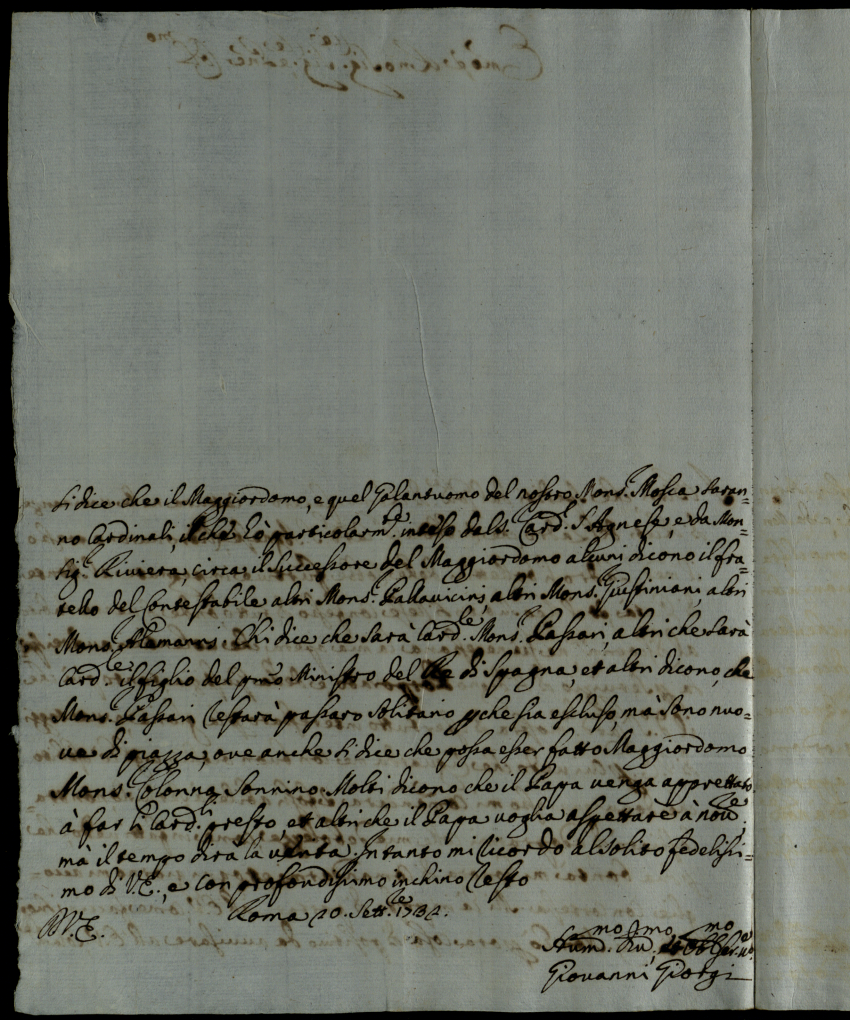 Si dice che il Maggiordomo, e quel Galantuomo del nostro Mons.r Mosca saran=
no Cardinali, il che hò particolarm.te inteso dal S. Card.l S. Agnese, e da Mon=
sig.r Riviera, circa il successore del Maggiordomo alcuni dicono il fra=
tello del Contestabile altri Mons.r Pallavicini, altri Mons.r Giustiniani, altri
Mons. Alamanni. Chi dice che sarà Card.le Mons.r Passari, altri che sarà
Card.le il figlio del pmo Ministro del Re di Spagna, et altri dicono, che
Mons.r Passari restarà passaro solitario pche sia escluso, mà sono nuo=
ve di piazza, ove anche si dice che possa esser fatto Maggiordomo
Mons.r Colonna Sonnino. Molti dicono che il Papa venga apprettato
à far li Card.li presto, et altri che il Papa voglia aspettare à nov.re
mà il tempo dirà la verità. Intanto mi ricordo al solito fedelissi=
mo di V.E., e con profondissimo inchino resto
Roma 10. Sett.re 1734.
D.V.E.
Hum.mo Div.mo Obblig.mo
Giovanni Giorgi